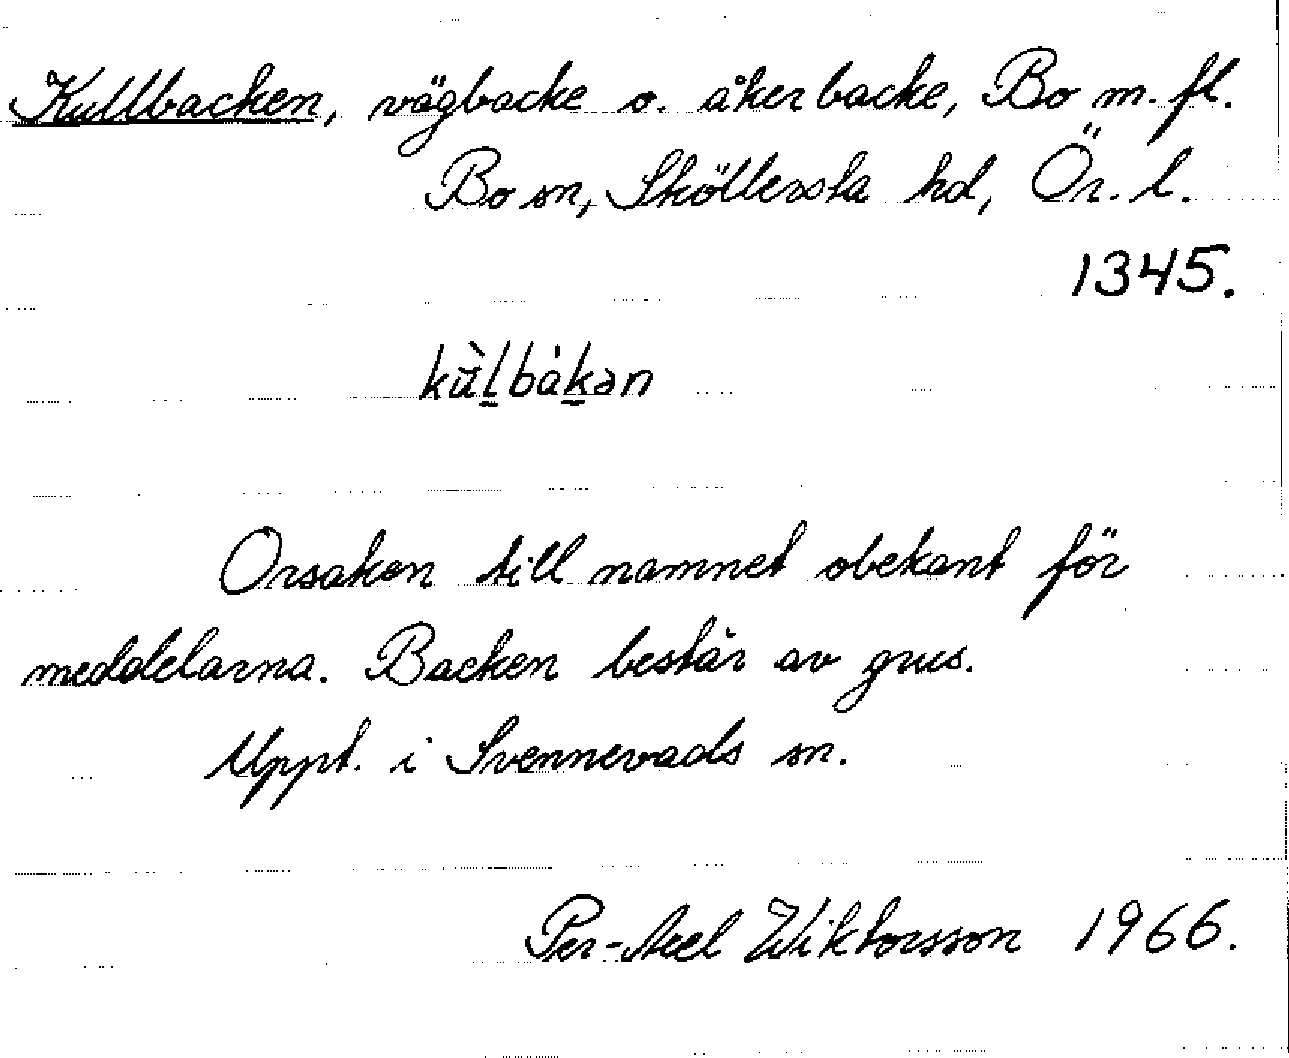 Kullbacken, vägbacke o. åkerbacke, Bo m. fl.
Bo sn, Sköllersta hd, Ör. l.
1345.
kùl̠bák̠ən
Orsaken till namnet obekant för
meddelarna. Backen består av grus.
Uppt. i Svennevads sn.
Per-Axel Wiktorsson 1966.